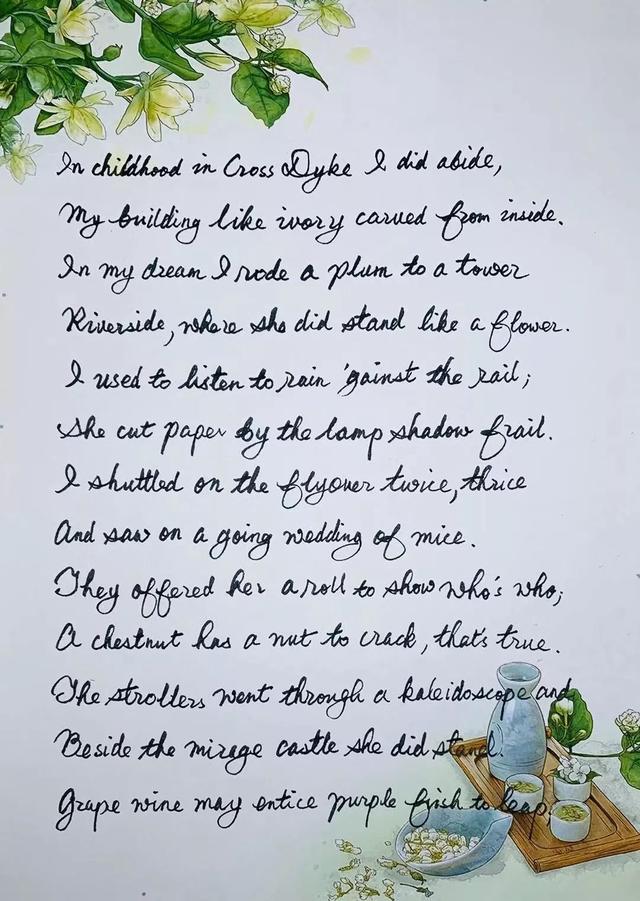 In childhood in Cross Dyke I did abide,
My building like ivory carved from inside.
In my dream I rode a plum to a tower
Riverside, where she did stand like a flower.
I used to listen to rain 'gainst the rail;
She cut paper by the lamp shadow frail.
I shuttled on the flyover twice, thrice
And saw on a going wedding of mice.
They offered her a roll to show who's who;
A chestnut has a nut to crack, that's true.
The strollers went through a kaleidoscope and
Beside the mirage castle she did stand.
Grape wine may entice purple fish to leap,